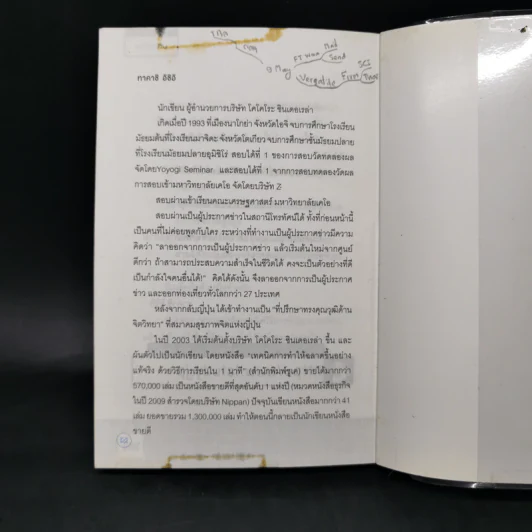 ทาคาชิ อิชิอิ
นักเขียน ผู้อำนวยการบริษัท โคโคโระ ซินเดอเรล่า
เกิดเมื่อปี 1993 ที่เมืองนาโกย่า จังหวัดไอจิ จบการศึกษาโรงเรียน
มัธยมต้นที่โรงเรียนมาจิดะ จังหวัดโตเกียว จบการศึกษาชั้นมัธยมปลาย
ที่โรงเรียนมัธยมปลายอุมิชิโร่ สอบได้ที่ 1 ของการสอบวัดทดลองผล
จัดโดยYoyogi Seminar และสอบได้ที่ 1 จากการสอบทดลองวัดผล
การสอบเข้ามหาวิทยาลัยเคโอ จัดโดยบริษัท Z
สอบผ่านเข้าเรียนคณะเศรษฐศาสตร์ มหาวิทยาลัยเคโอ
สอบผ่านเป็นผู้ประกาศข่าวในสถานีโทรทัศน์ได้ ทั้งที่ก่อนหน้านี้
เป็นคนที่ไม่ค่อยพูดกับใคร ระหว่างที่ทำงานเป็นผู้ประกาศข่าวมีความ
คิดว่า "ลาออกจากการเป็นผู้ประกาศข่าว แล้วเริ่มต้นใหม่จากศูนย์
ดีกว่า ถ้าสามารถประสบความสำเร็จในชีวิตได้ คงจะเป็นตัวอย่างที่ดี
เป็นกำลังใจคนอื่นได้!" คิดได้ดังนั้น จึงลาออกจากการเป็นผู้ประกาศ
ข่าว และออกท่องเที่ยวทั่วโลกกว่า 27 ประเทศ
หลังจากกลับญี่ปุ่น ได้เข้าทำงานเป็น "ที่ปรึกษาทรงคุณวุฒิด้าน
จิตวิทยา" ที่สมาคมสุขภาพจิตแห่งญี่ปุ่น
ในปี 2003 ได้เริ่มต้นตั้งบริษัท โคโคโระ ซินเดอเรล่า ขึ้น และ
ผันตัวไปเป็นนักเขียน โดยหนังสือ "เทคนิคการทำให้ฉลาดขึ้นอย่าง
แท้จริง ด้วยวิธีการเรียนใน 1 นาที" (สำนักพิมพ์ชูเค) ขายได้มากกว่า
570,000 เล่ม เป็นหนังสือขายดีที่สุดอันดับ 1 แห่งปี (หมวดหนังสือธุรกิจ
ในปี 2009 สำรวจโดยบริษัท Nippan) ปัจจุบันเขียนหนังสือมากกว่า 41
เล่ม ยอดขายรวม 1,300,000 เล่ม ทำให้ตอนนี้กลายเป็นนักเขียนหนังสือ
ขายดี